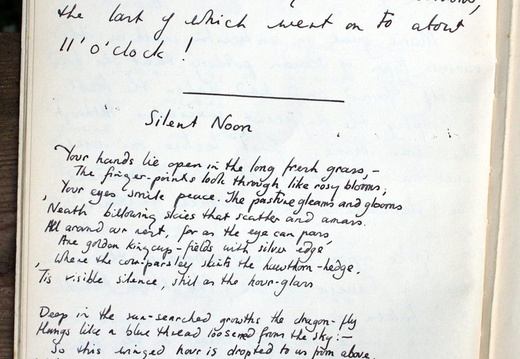 the last of which went on to about
11 'o'clock !
Silent Noon
Your hands lie open in the long fresh grass, –
The finger-points look through like rosy blooms;
Your eyes smile peace. The pasture gleams and glooms
'Neath billowing skies that scatter and amass.
All around our nest, far as the eye can pass,
Are golden kingcup-fields with silver edge
Where the cow-parsley skirts the hawthorn-hedge.
'Tis visible silence, still as the hour-glass
Deep in the sun-searched growths the dragon-fly
Hangs like a blue thread loosened from the sky: –
So this winged hour is dropt to us from above.